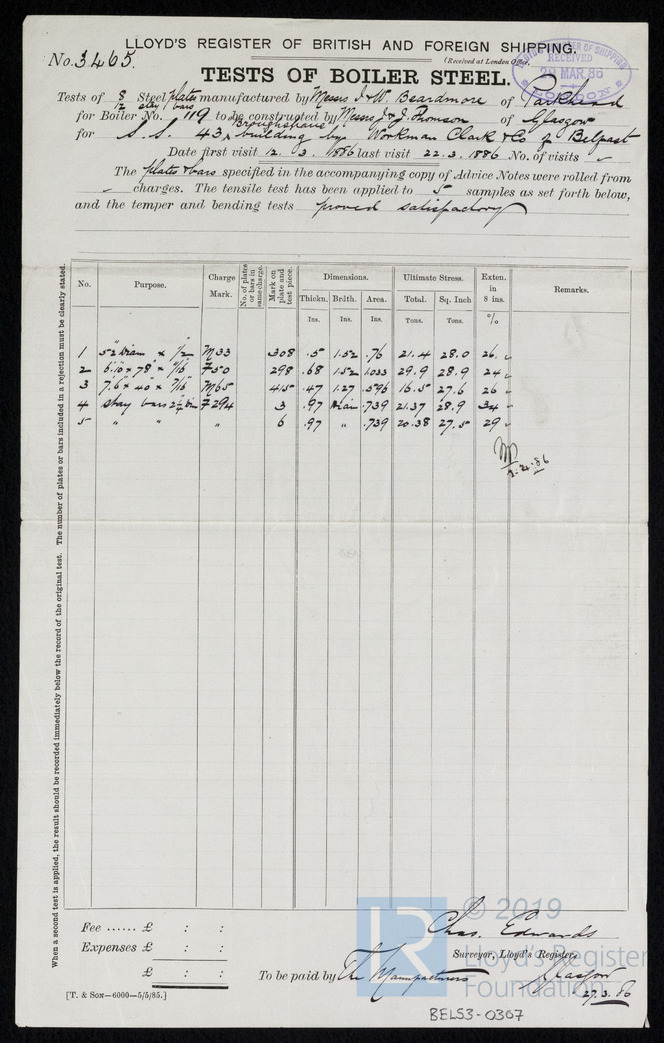 LLOYD'S REGISTER OF BRITISH AND FOREIGN SHIPPING.
No. 3465.
(Received at London Office,
LLOYD'S REGISTER OF SHIPPING
RECEIVED
29 MAR. 86
LONDON
TESTS OF BOILER STEEL.
Tests of 8 Steel plates manufactured by Messrs J. & W. Beardmore of Parkhead
12 stay bars
for Boiler No. 119 to be constructed by Messrs J. & J. Thomson of Glasgow
Broughshane
for S.S. 43, building by Workman Clark & Co of Belfast
Date first visit 12. 3. 1886 last visit 22. 3. 1886 No. of visits "
The plates & bars specified in the accompanying copy of Advice Notes were rolled from
" charges. The tensile test has been applied to 5 samples as set forth below,
and the temper and bending tests proved satisfactory
When a second test is applied, the result should be recorded immediately below the record of the original test. The number of plates or bars included in a rejection must be clearly stated.
No. Purpose. Charge Mark. No. of plates or bars in same charge. Mark on plate and test piece. Dimensions. Ultimate Stress. Exten. in 8 ins. Remarks.
Thickn. Brdth. Area. Total. Sq. Inch
Ins. Ins. Ins. Tons. Tons. %
1 52" Diam × 1/2" M33 308 .5 1.52 .76 21.4 28.0 26.
2 6.10 × 78" × 11/16" 750 298 .68 1.52 1.033 29.9 28.9 24
3 7.6 × 40 × 7/16" M65 415 .47 1.27 .596 16.5 27.6 26
4 Stay bars 2 1/4 dia 7294 3 .97 Diam .739 21.37 28.9 34
5 " " " 6 .97 " .739 20.38 27.5 29
2.4.86
Fee ...... £ : :
Expenses £ : :
£ : :
Chas. Edwards
Surveyor, Lloyd's Register,
To be paid by The Manufacturers
Glasgow
27.3.86
[T. & SON—6000—5/5/85.]
LR
© 2019
Lloyd's Register
Foundation
BEL53-0307